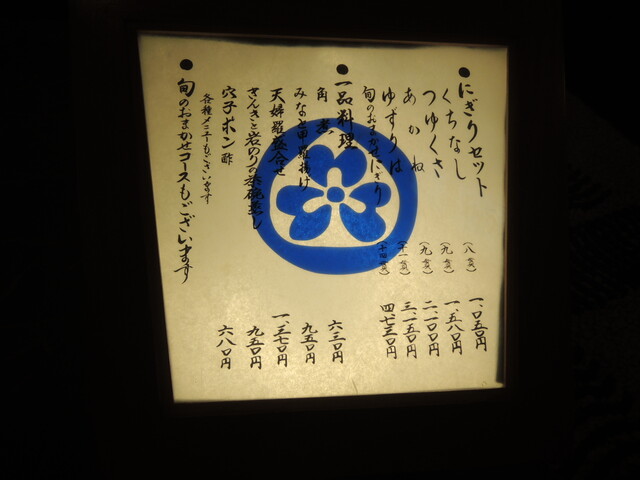 ●にぎりセット
くちなし（八貫）一、〇五〇円
つゆくさ（九貫）一、五八〇円
あかね（九貫）二、一〇〇円
ゆずりは（十一貫）三、一五〇円
旬のおまかせにぎり（十四貫）四、七三〇円
●一品料理
角煮 六三〇円
みなと甲羅揚げ 九五〇円
天婦羅盛合せ 一、三七〇円
さんきと岩のりの茶碗蒸し 九五〇円
穴子ポン酢 六八〇円
各種メニューもございます
●旬のおまかせコースもございます